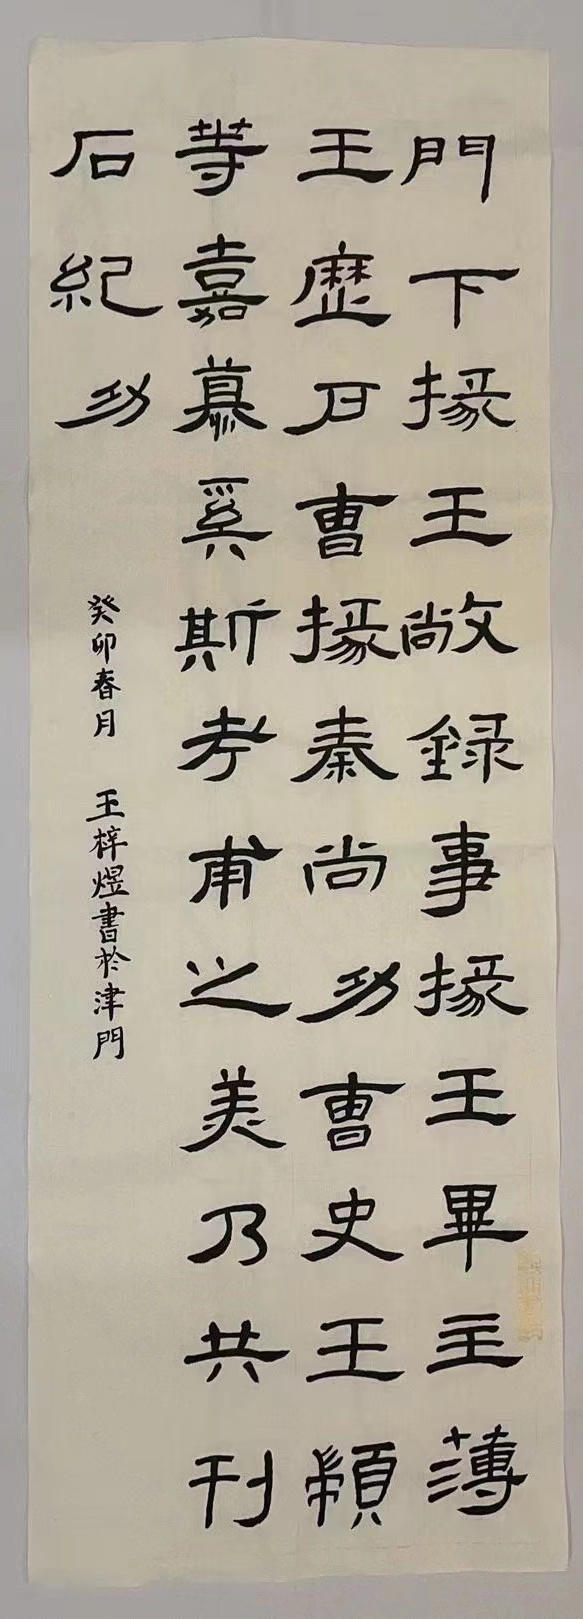 門下掾王敞録事掾王畢主薄
王歷戶曹掾秦尚功曹史王顓
等嘉慕奚斯考甫之美乃共刊
石紀功
癸卯春月 王梓煜書於津門